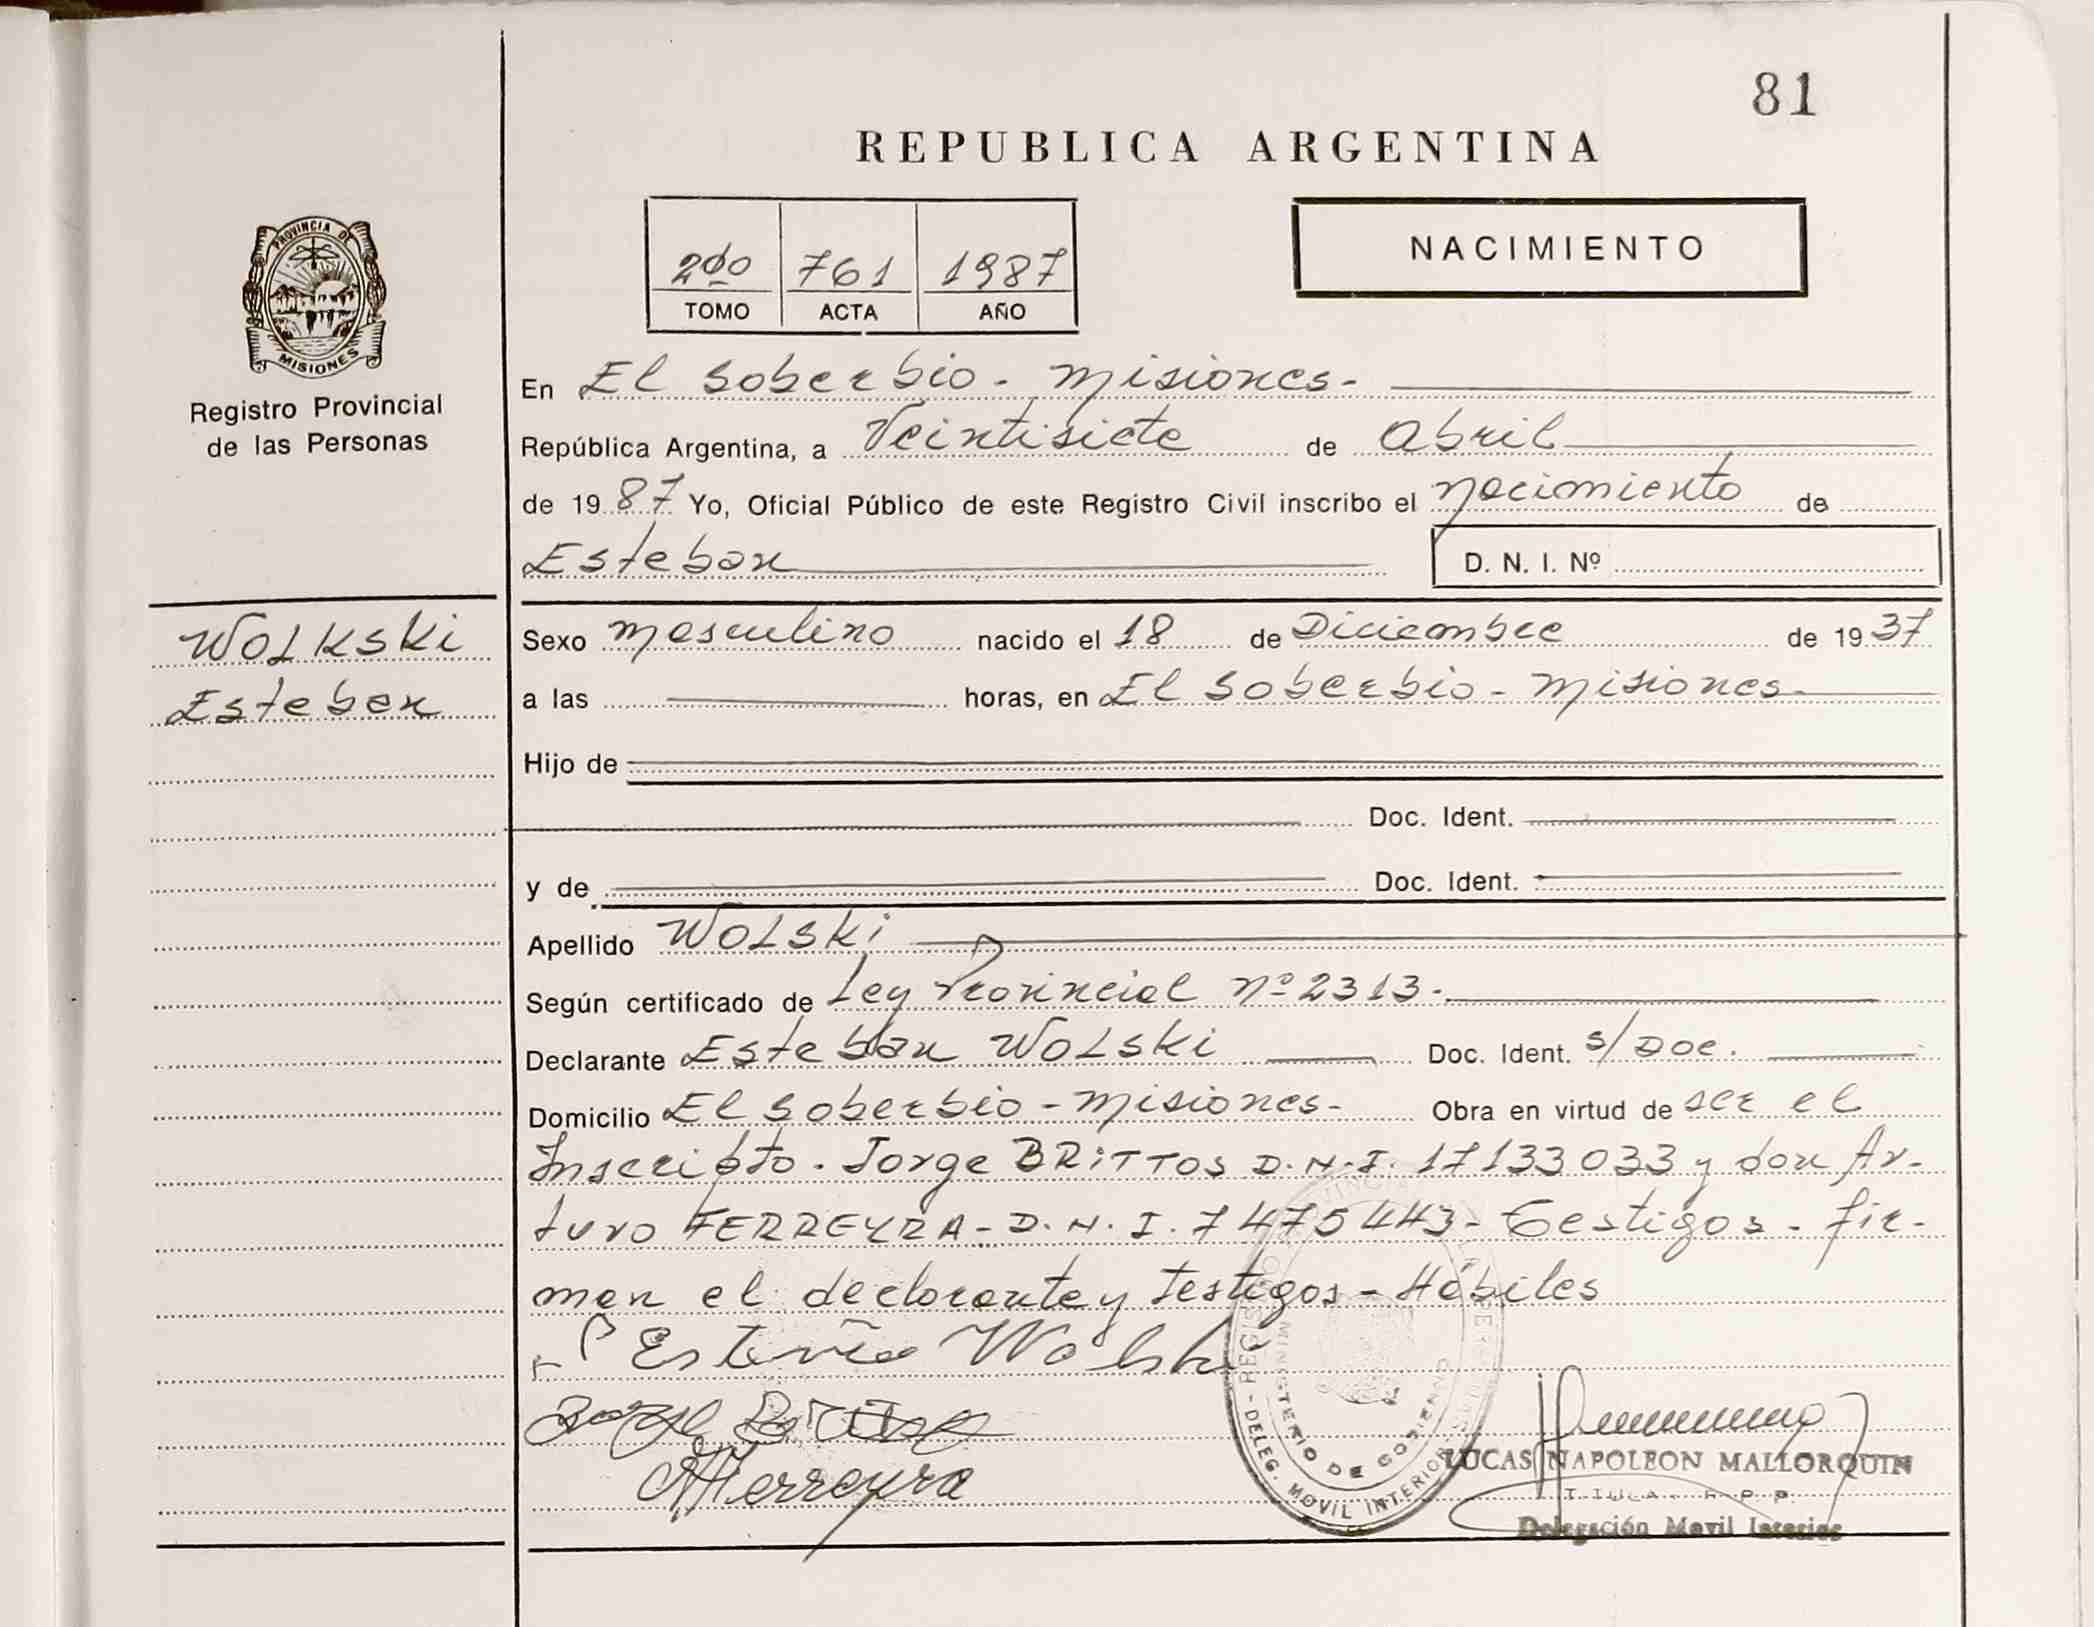 81
REPUBLICA ARGENTINA
PROVINCIA DE
MISIONES
Registro Provincial
de las Personas
2do 761 1987
TOMO ACTA AÑO
NACIMIENTO
En El Soberbio - Misiones -
República Argentina, a Veintisiete de Abril
de 1987 Yo, Oficial Público de este Registro Civil inscribo el nacimiento de
Esteban D. N. I. Nº
WOLKSKi
Esteban
Sexo masculino nacido el 18 de Diciembre de 1937
a las horas, en El Soberbio - Misiones -
Hijo de
Doc. Ident.
y de Doc. Ident.
Apellido WOLSKi
Según certificado de Ley Provincial Nº 2313 -
Declarante Esteban WOLSKi Doc. Ident. S/Doc.
Domicilio El Soberbio - Misiones - Obra en virtud de ser el
Inscripto. Jorge BRiTTOS D.N.I. 17133033 y don Ar-
turo FERREYRA - D.N.I. 7475443 - Testigos - fir-
man el declarante y testigos - Hábiles
Jorge Brittos
AFerreyra
LUCAS NAPOLEON MALLORQUIN
Delegación Movil Interior
MINISTERIO DE GOBIERNO
DELEG. MOVIL INTERIOR